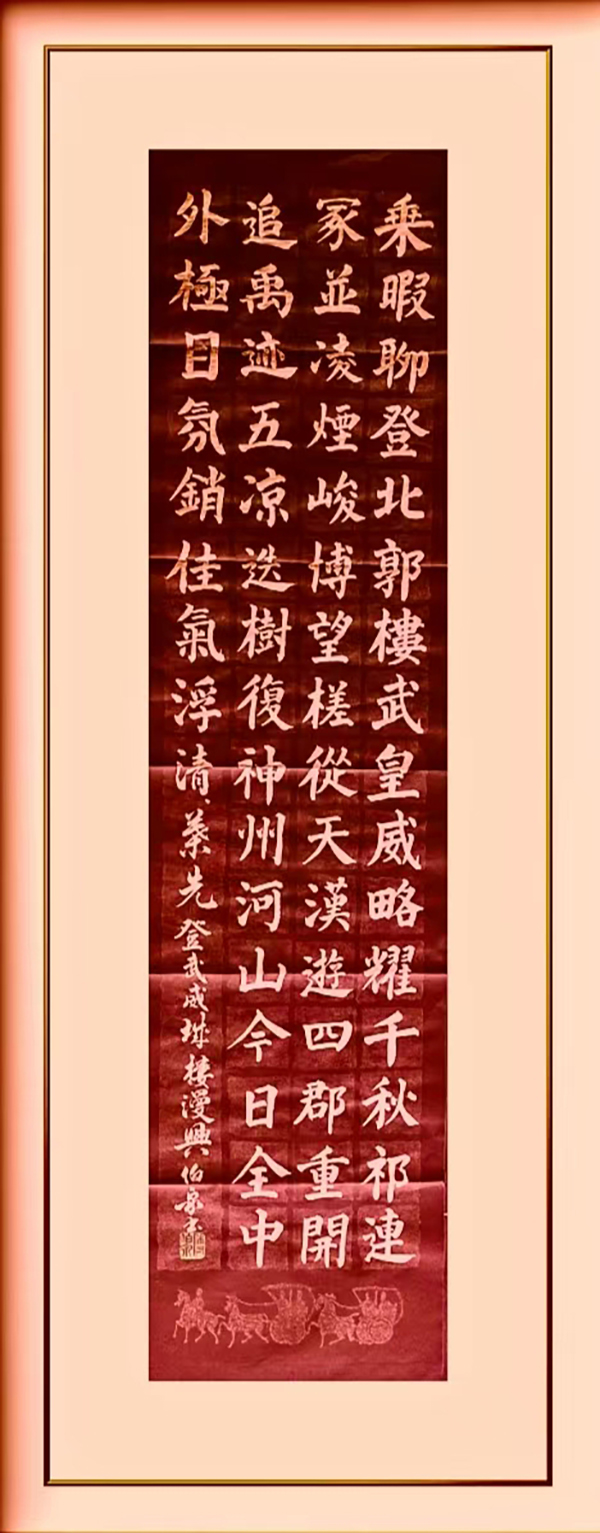 乗暇聊登北郭樓武皇威略耀千秋祁連
冢並凌煙峻博望槎從天漢遊四郡重開
追禹迹五凉迭樹復神州河山今日全中
外極目氛銷佳氣浮清葉先登武威城樓漫興伯泉書